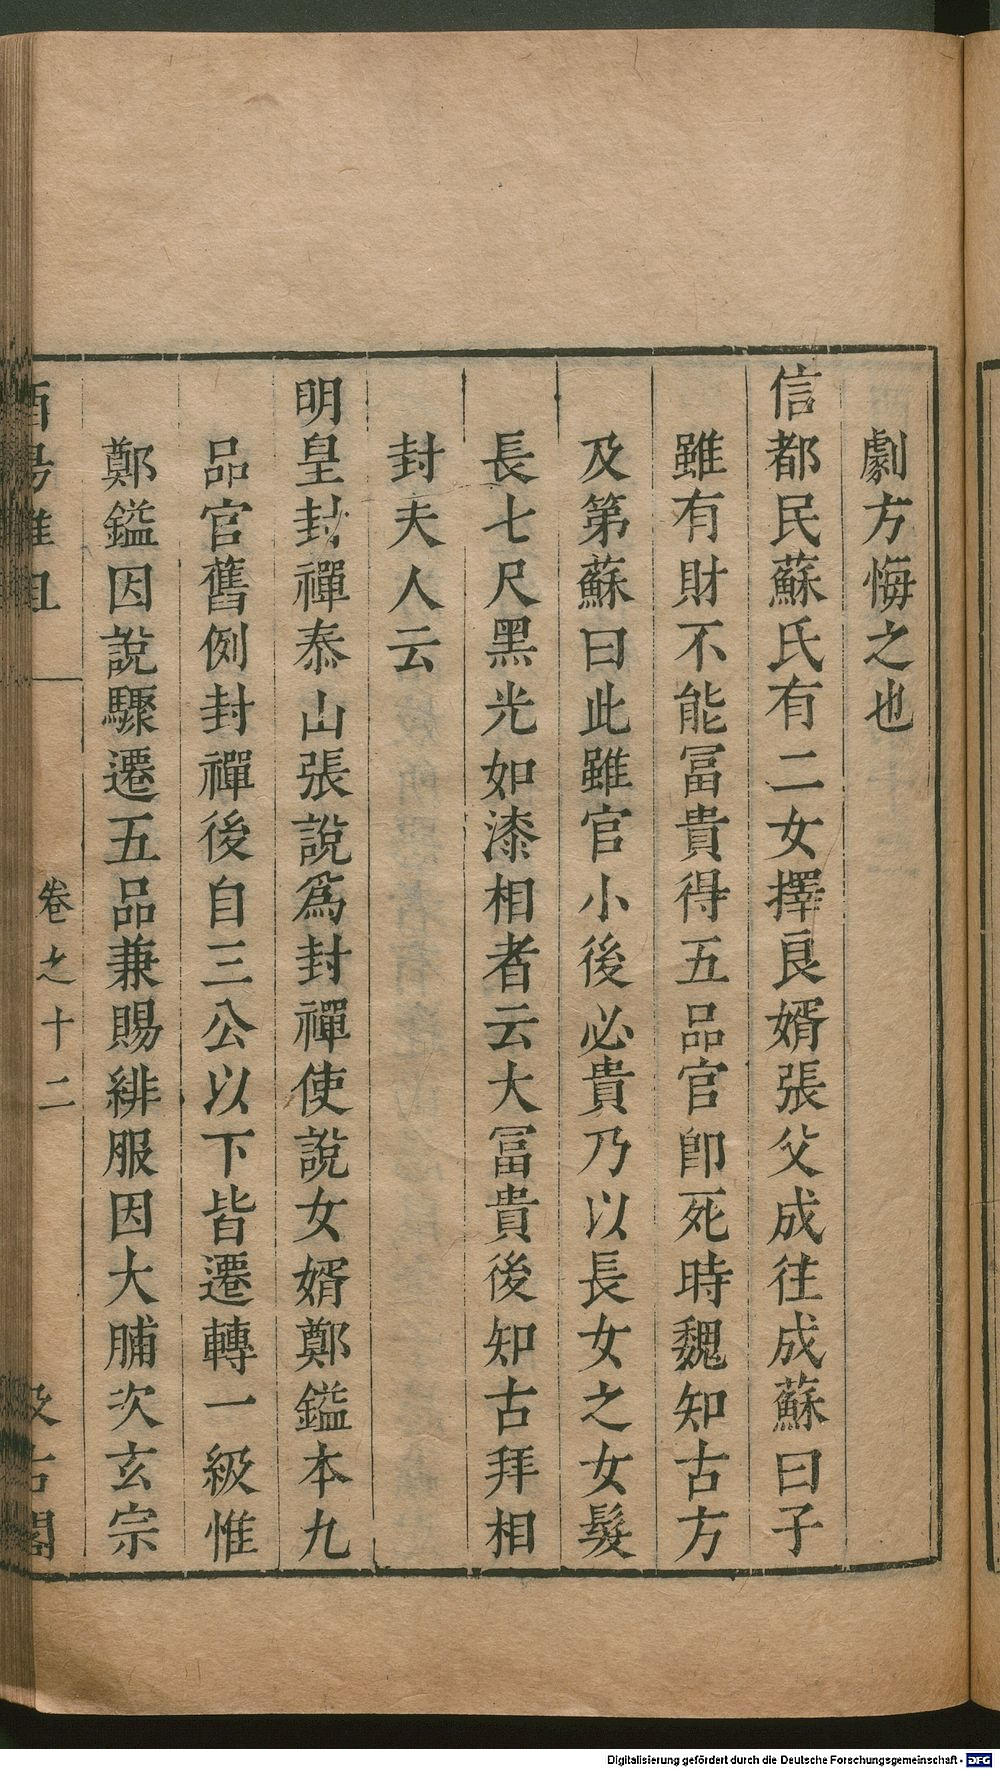 劇方悔之也
信都民蘇氏有二女擇良婿張父成往成蘇曰子
雖有財不能冨貴得五品官卽死時魏知古方
及第蘇曰此雖官小後必貴乃以長女之女髮
長七尺黑光如漆相者云大冨貴後知古拜相
封夫人云
明皇封禪泰山張說爲封禪使說女婿鄭鎰本九
品官舊例封禪後自三公以下皆遷轉一級惟
鄭鎰因說驟遷五品兼賜緋服因大脯次玄宗
酉陽雜俎
卷之十二
汲古閣
Digitalisierung gefördert durch die Deutsche Forschungsgemeinschaft - DFG